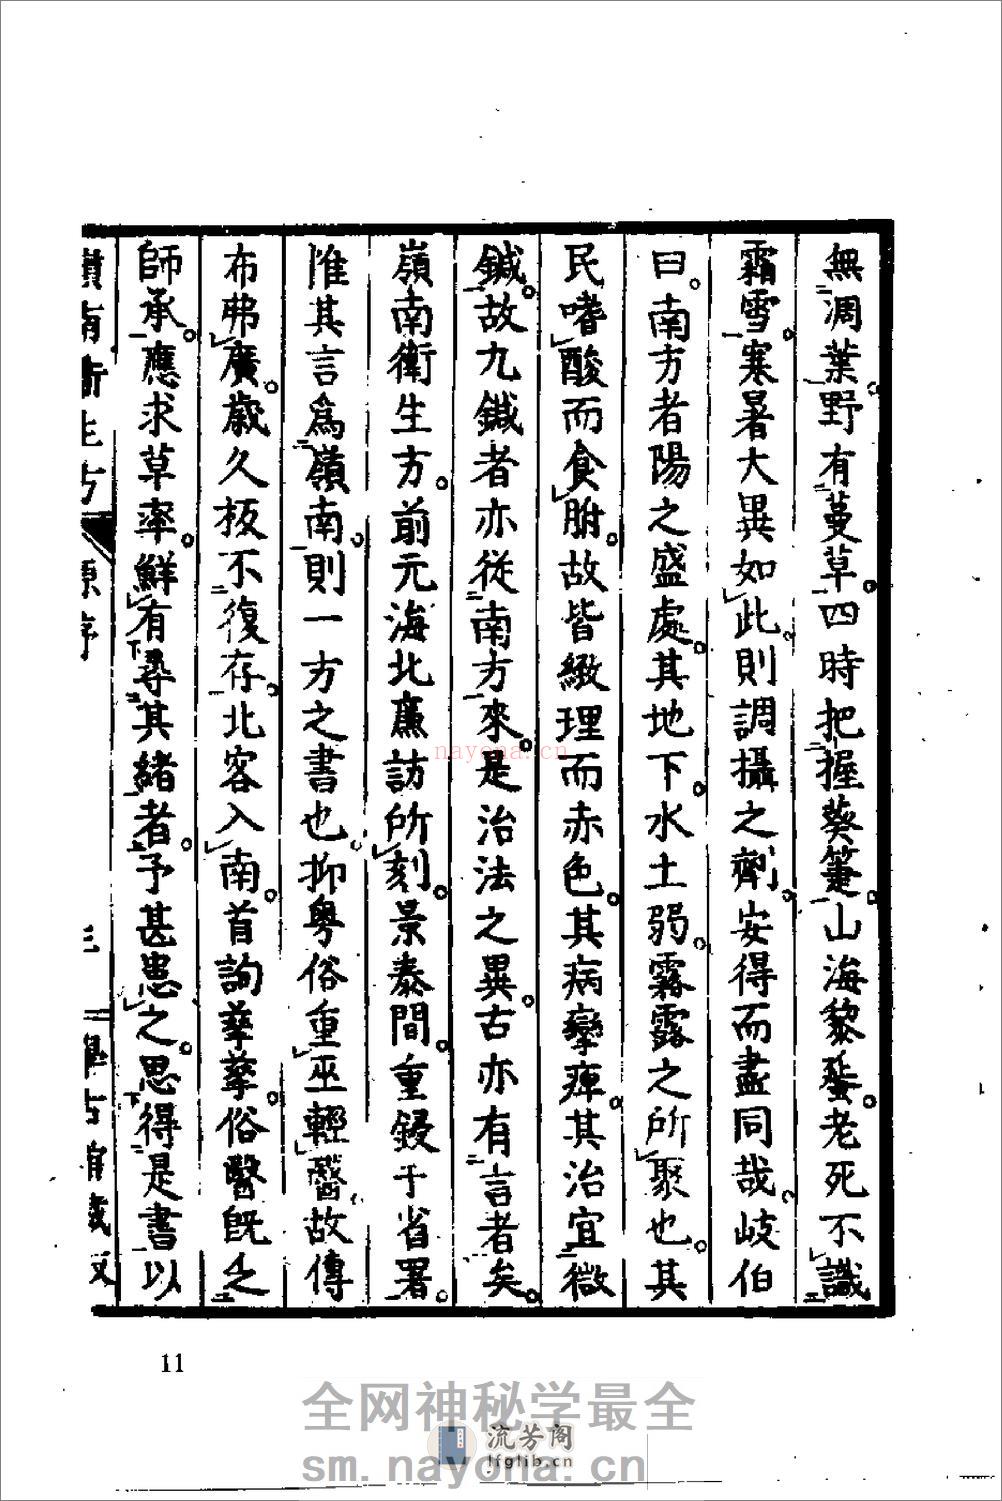 無凋葉野有蔓草。四時把握葵箑。山海黎蜑。老死不識
霜雪。寒暑大異如此。則調攝之劑。安得而盡同哉。岐伯
曰。南方者陽之盛處。其地下。水土弱。霧露之所聚也。其
民嗜酸而食胕。故皆緻理而赤色。其病攣痺。其治宜微
鍼。故九鍼者亦從南方來。是治法之異。古亦有言者矣。
嶺南衛生方。前元海北廉訪所刻。景泰間。重鋟于省署。
惟其言爲嶺南。則一方之書也。抑粤俗重巫輕醫。故傳
布弗廣。歲久板不復存。北客入南。首詢孳孳。俗醫既乏
師承。應求草率。鮮有尋其緒者。予甚患之。思得是書以
嶺南衛生方 原序 三 學古館藏版
11
nayona.cn
全网神秘学最全
流芳阁
lfglib.cn
sm.nayona.cn